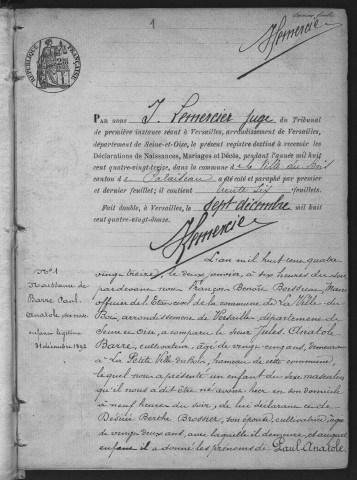 1
Dernier feuillet
Lemercier
RÉPUBLIQUE FRANÇAISE
PAR nous J. Lemercier Juge du Tribunal
de première instance séant à Versailles, arrondissement de Versailles,
département de Seine-et-Oise, le présent registre destiné à recevoir les
Déclarations de Naissances, Mariages et Décès, pendant l'année mil huit
cent quatre-vingt-treize, dans la commune de La Ville du Bois
canton de Palaiseau a été coté et paraphé par premier
et dernier feuillet; il contient trente six feuillets.
Fait double, à Versailles, le sept décembre mil huit
cent quatre-vingt-douze.
Lemercier
N° 1
Naissance de
Barre Paul
Anatole
enfant légitime
31 décembre 1892
L'an mil huit cent quatre
vingt treize, le deux janvier, à six heures du soir
pardevant nous François Benoît Boisseau Maire
officier de l'Etat-civil de la commune de La Ville-du-
Bois, arrondissement de Versailles département de
Seine-et-Oise, a comparu le sieur Jules Anatole
Barre, cultivateur, âgé de vingt cinq ans, demeurant
à La Petite Ville du Bois, hameau de cette commune,
lequel nous a présenté un enfant du sexe masculin
qu'il nous a dit être né avant hier en son domicile
à neuf heures du soir, de lui déclarant et de
Désirée Berthe Brossier, son épouse, cultivatrice, âgée
de vingt deux ans, avec laquelle il demeure, et auquel
enfant il a donné les prénoms de Paul Anatole